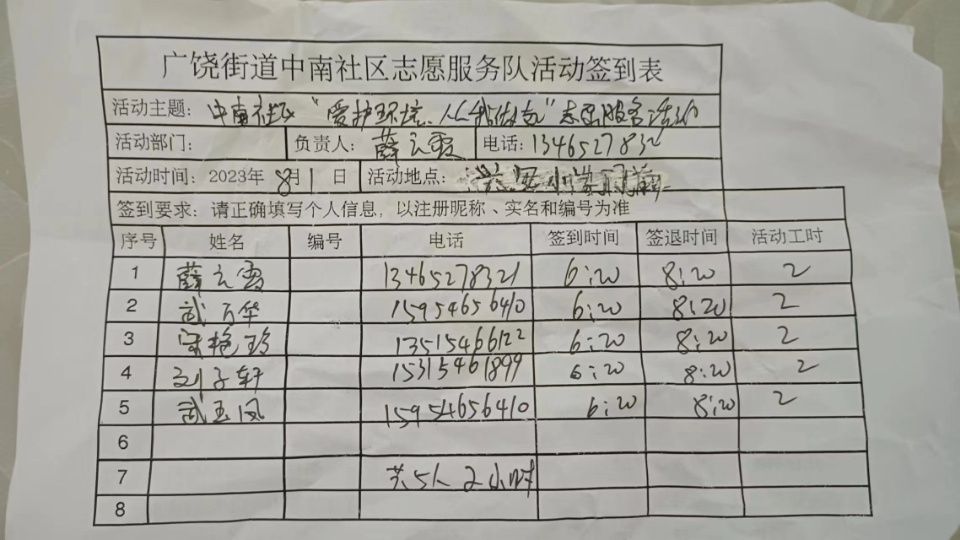 广饶街道中南社区志愿服务队活动签到表
活动主题：中南社区“爱护环境、人人我做起”志愿服务活动
活动部门： 负责人：薛之霞 电话：1346527832
活动时间：2023年8月1日 活动地点：
签到要求：请正确填写个人信息，以注册昵称、实名和编号为准
序号 姓名 编号 电话 签到时间 签退时间 活动工时
1 薛之霞 13465278321 6:20 8:20 2
2 武万华 15954656410 6:20 8:20 2
3 宋艳玲 13515466122 6:20 8:20 2
4 刘子轩 15315461899 6:20 8:20 2
5 武玉凤 15954656410 6:20 8:20 2
6
7 共5人 2小时
8